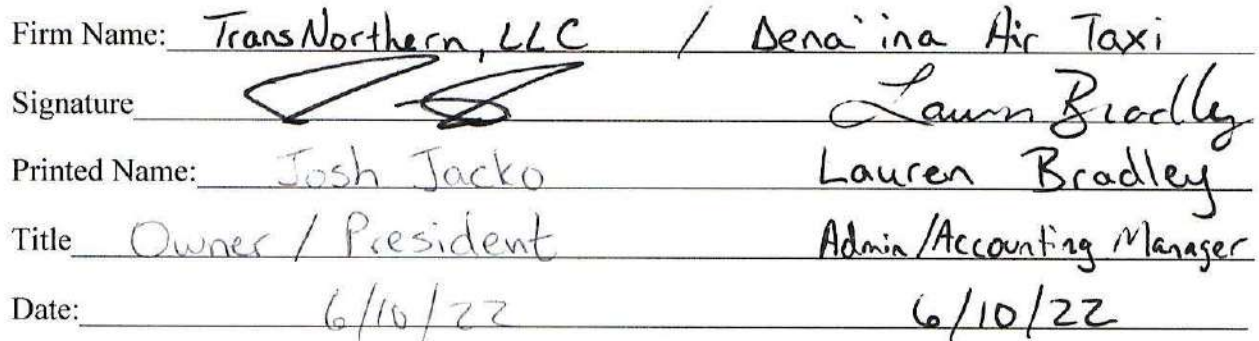 Firm Name: TransNorthern, LLC / Dena'ina Air Taxi
Signature Lauren Bradley
Printed Name: Josh Jacko Lauren Bradley
Title Owner / President Admin/Accounting Manager
Date: 6/10/22 6/10/22